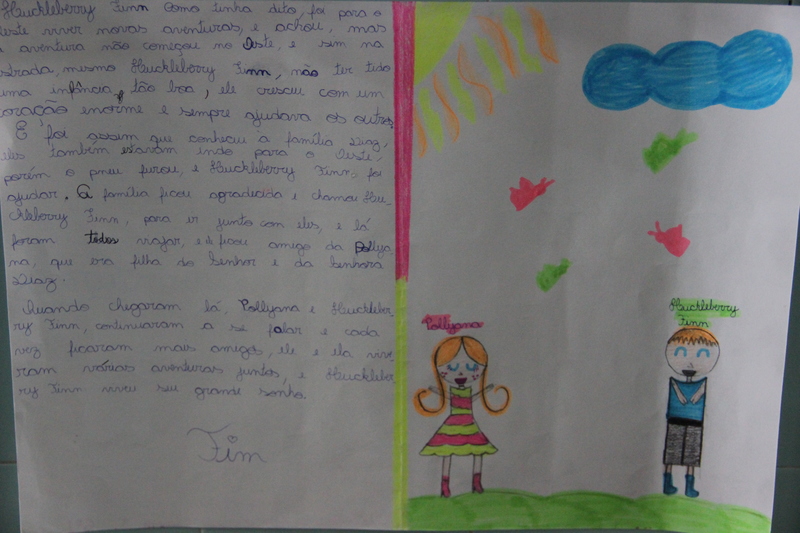 Huckleberry Finn como tinha dito, foi para o
oeste viver novas aventuras, e achou, mas
a aventura não começou no Oeste, e sim na
estrada, mesmo Huckleberry Finn, não ter tido
uma infância tão boa, ele cresceu com um
coração enorme e sempre ajudava os outros.
E foi assim que conheceu a família Diaz,
eles também estavam indo para o Oeste,
porém o pneu furou, e Huckleberry Finn, foi
ajudar. A família ficou agradecida e chamou Hu-
ckleberry Finn, para ir junto com eles, e lá
foram todos viajar, e ficou amigo da Pollya
na, que era filha do Senhor e da Senhora
Diaz.
Quando chegaram lá, Pollyana e Huckleber-
ry Finn, continuaram a se falar e cada
vez ficaram mais amigos, ele e ela vive
ram várias aventuras juntos, e Huckleber
ry Finn viveu seu grande sonho.
Fim
Pollyana
Huckleberry
Finn